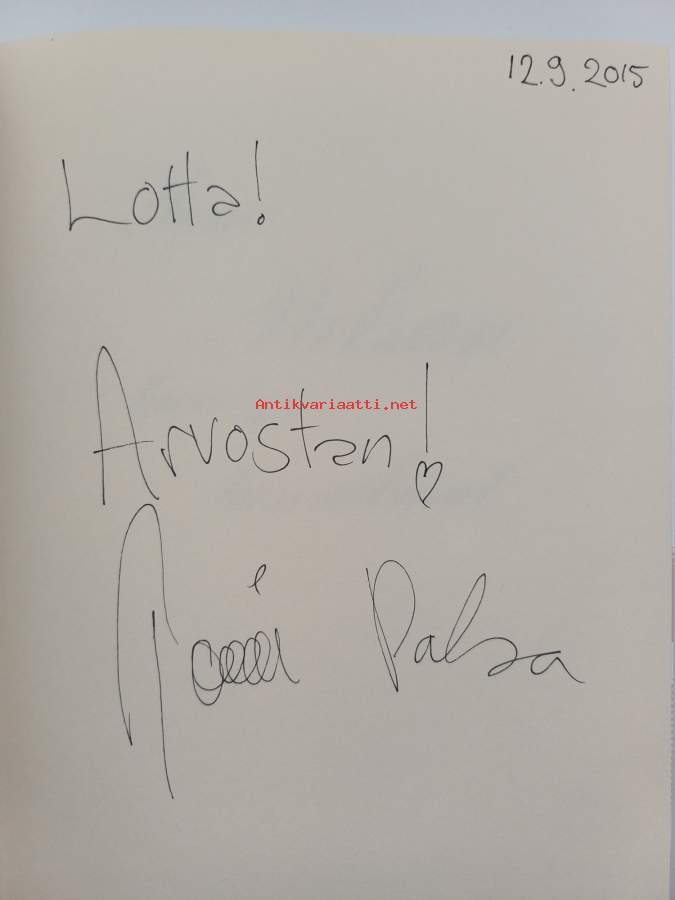 12.9.2015
Lotta!
Antikvariaatti.net
Arvostan!
Palsa